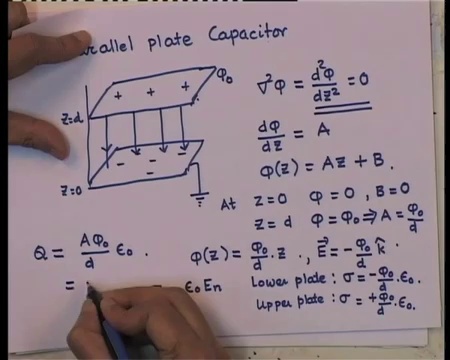 Parallel plate Capacitor
φ₀
+ + +
z=d
- - - -
z=0
∇²φ = d²φ/dz² = 0
dφ/dz = A
φ(z) = Az + B.
At z=0 φ=0, B=0
z=d φ=φ₀ ⇒ A = φ₀/d
φ(z) = φ₀/d . z , E⃗ = -φ₀/d k̂.
Lower plate : σ = -φ₀/d . ε₀.
Upper plate : σ = +φ₀/d . ε₀.
Q = Aφ₀/d ε₀ .
=
= ε₀ En